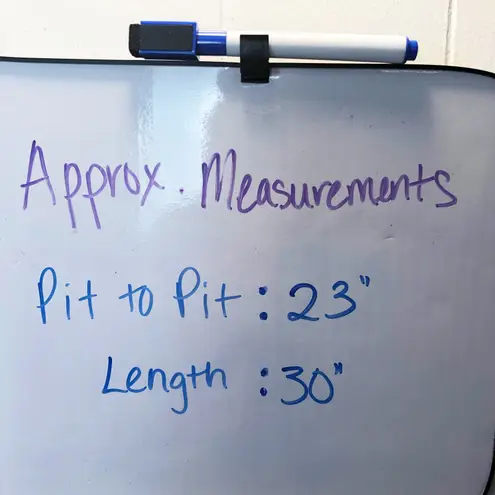 Approx. Measurements
Pit to Pit : 23"
Length : 30"